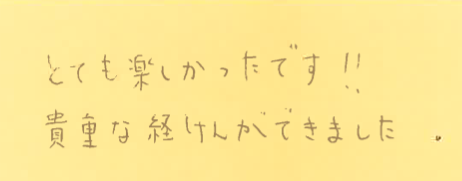 とても楽しかったです!!
貴重な経けんができました 。